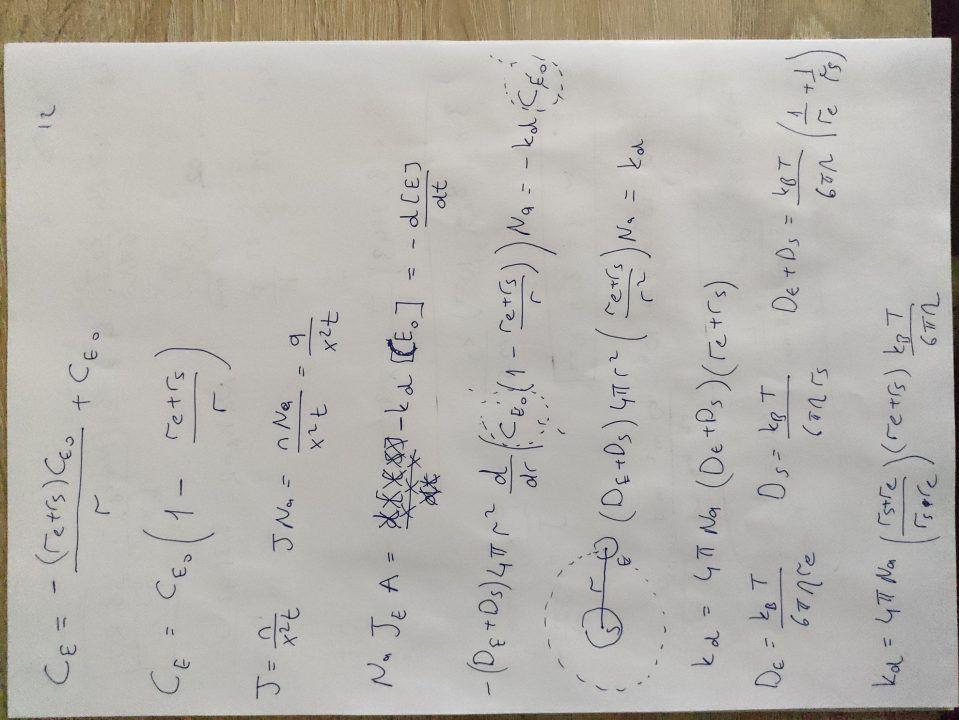 12
C_E = - (re+rs)C_E₀ / r + C_E₀
C_E = C_E₀ (1 - re+rs / r)
J = n / x²t   J Na = n Na / x²t = a / x²t
Na J_E A = - kd [E₀] = - d[E] / dt
-(D_E+D_S)4πr² d/dr (C_E₀ (1 - re+rs / r)) Na = - kd C_E₀
S r E (D_E+D_S) 4πr² (re+rs / r²) Na = kd
kd = 4π Na (D_E+D_S)(re+rs)
D_E = k_B T / 6πη re   D_S = k_B T / 6πη rs   D_E+D_S = k_B T / 6πη (1/re + 1/rs)
kd = 4π Na (rs+re / rs·re)(re+rs) k_B T / 6πη